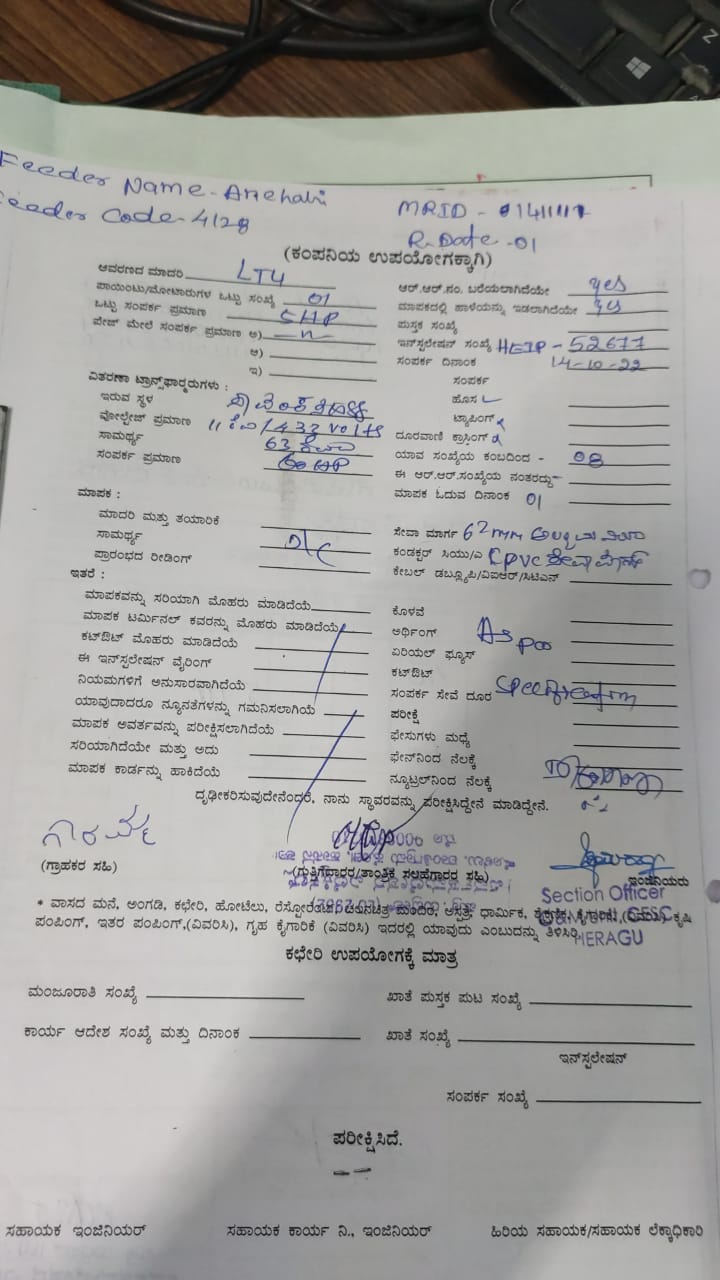 Feeder Name - Anehalli
Feeder Code - 4128
MRID - 01411117
R. Date - 01
(ಕಂಪನಿಯ ಉಪಯೋಗಕ್ಕಾಗಿ)
ಆವರಣದ ಮಾದರಿ LT4
ಪಾಯಿಂಟು/ಮೋಟಾರುಗಳ ಒಟ್ಟು ಸಂಖ್ಯೆ 01
ಒಟ್ಟು ಸಂಪರ್ಕ ಪ್ರಮಾಣ 5HP
ಪೇಜ್ ಮೇಲೆ ಸಂಪರ್ಕ ಪ್ರಮಾಣ ಅ)
ಆ)
ಇ)
ಆರ್.ಆರ್.ನಂ. ಬರೆಯಲಾಗಿದೆಯೇ yes
ಮಾಪಕದಲ್ಲಿ ಹಾಳೆಯನ್ನು ಇಡಲಾಗಿದೆಯೇ yes
ಪುಸ್ತಕ ಸಂಖ್ಯೆ
ಇನ್‌ಸ್ಟಲೇಷನ್ ಸಂಖ್ಯೆ HEIP - 52677
ಸಂಪರ್ಕ ದಿನಾಂಕ 14-10-22
ಸಂಪರ್ಕ
ಹೊಸ
ಟ್ಯಾಪಿಂಗ್
ದೂರವಾಣಿ ಕ್ರಾಸಿಂಗ್
ಯಾವ ಸಂಖ್ಯೆಯ ಕಂಬದಿಂದ - 08
ಈ ಆರ್.ಆರ್.ಸಂಖ್ಯೆಯ ನಂತರದ್ದು
ಮಾಪಕ ಓದುವ ದಿನಾಂಕ 01
ವಿತರಣಾ ಟ್ರಾನ್ಸ್‌ಫಾರ್ಮರುಗಳು :
ಇರುವ ಸ್ಥಳ
ವೋಲ್ಟೇಜ್ ಪ್ರಮಾಣ 11 ಕೆವಿ/433 Volts
ಸಾಮರ್ಥ್ಯ 63 ಕೆವಿಎ
ಸಂಪರ್ಕ ಪ್ರಮಾಣ 60 HP
ಮಾಪಕ :
ಮಾದರಿ ಮತ್ತು ತಯಾರಿಕೆ
ಸಾಮರ್ಥ್ಯ
ಪ್ರಾರಂಭದ ರೀಡಿಂಗ್
ಇತರೆ :
ಮಾಪಕವನ್ನು ಸರಿಯಾಗಿ ಮೊಹರು ಮಾಡಿದೆಯೆ
ಮಾಪಕ ಟರ್ಮಿನಲ್ ಕವರನ್ನು ಮೊಹರು ಮಾಡಿದೆಯೆ
ಕಟ್‌ಔಟ್ ಮೊಹರು ಮಾಡಿದೆಯೆ
ಈ ಇನ್‌ಸ್ಟಲೇಷನ್ ವೈರಿಂಗ್
ನಿಯಮಗಳಿಗೆ ಅನುಸಾರವಾಗಿದೆಯೆ
ಯಾವುದಾದರೂ ನ್ಯೂನತೆಗಳನ್ನು ಗಮನಿಸಲಾಗಿಯೆ
ಮಾಪಕ ಆವರ್ತವನ್ನು ಪರೀಕ್ಷಿಸಲಾಗಿದೆಯೆ
ಸರಿಯಾಗಿದೆಯೇ ಮತ್ತು ಅದು
ಮಾಪಕ ಕಾರ್ಡನ್ನು ಹಾಕಿದೆಯೆ
ಸೇವಾ ಮಾರ್ಗ
ಕಂಡಕ್ಟರ್ ಸಿಯು/ಎ CPVC
ಕೇಬಲ್ ಡಬ್ಲ್ಯೂಪಿ/ವಿಐಆರ್/ಸಿಟಿಎಸ್
ಕೊಳವೆ
ಅರ್ಥಿಂಗ್ As per
ಏರಿಯಲ್ ಫ್ಯೂಸ್
ಕಟ್‌ಔಟ್
ಸಂಪರ್ಕ ಸೇವೆ ದೂರ Specification
ಪರೀಕ್ಷೆ
ಫೇಸುಗಳು ಮಧ್ಯೆ
ಫೇಸ್‌ನಿಂದ ನೆಲಕ್ಕೆ
ನ್ಯೂಟ್ರಲ್‌ನಿಂದ ನೆಲಕ್ಕೆ
ದೃಢೀಕರಿಸುವುದೇನೆಂದರೆ, ನಾನು ಸ್ಥಾವರವನ್ನು ಪರೀಕ್ಷಿಸಿದ್ದೇನೆ ಮಾಡಿದ್ದೇನೆ.
(ಗ್ರಾಹಕರ ಸಹಿ)
(ಗುತ್ತಿಗೆದಾರರ/ತಾಂತ್ರಿಕ ಸಲಹೆಗಾರರ ಸಹಿ)
ಇಂಜಿನಿಯರು
Section Officer
CESC
HERAGU
* ವಾಸದ ಮನೆ, ಅಂಗಡಿ, ಕಛೇರಿ, ಹೋಟೆಲು, ರೆಸ್ಟೋರೆಂಟ್, ಚಲನಚಿತ್ರ ಮಂದಿರ, ಆಸ್ಪತ್ರೆ, ಧಾರ್ಮಿಕ, ಶೈಕ್ಷಣಿಕ, ಕೈಗಾರಿಕೆ, (ವಿವರಿಸಿ) ಕೃಷಿ
ಪಂಪಿಂಗ್, ಇತರ ಪಂಪಿಂಗ್,(ವಿವರಿಸಿ), ಗೃಹ ಕೈಗಾರಿಕೆ (ವಿವರಿಸಿ) ಇದರಲ್ಲಿ ಯಾವುದು ಎಂಬುದನ್ನು ತಿಳಿಸಿರಿ.
ಕಛೇರಿ ಉಪಯೋಗಕ್ಕೆ ಮಾತ್ರ
ಮಂಜೂರಾತಿ ಸಂಖ್ಯೆ
ಖಾತೆ ಪುಸ್ತಕ ಪುಟ ಸಂಖ್ಯೆ
ಕಾರ್ಯ ಆದೇಶ ಸಂಖ್ಯೆ ಮತ್ತು ದಿನಾಂಕ
ಖಾತೆ ಸಂಖ್ಯೆ
ಇನ್‌ಸ್ಟಲೇಷನ್
ಸಂಪರ್ಕ ಸಂಖ್ಯೆ
ಪರೀಕ್ಷಿಸಿದೆ.
ಸಹಾಯಕ ಇಂಜಿನಿಯರ್
ಸಹಾಯಕ ಕಾರ್ಯ ನಿ., ಇಂಜಿನಿಯರ್
ಹಿರಿಯ ಸಹಾಯಕ/ಸಹಾಯಕ ಲೆಕ್ಕಾಧಿಕಾರಿ